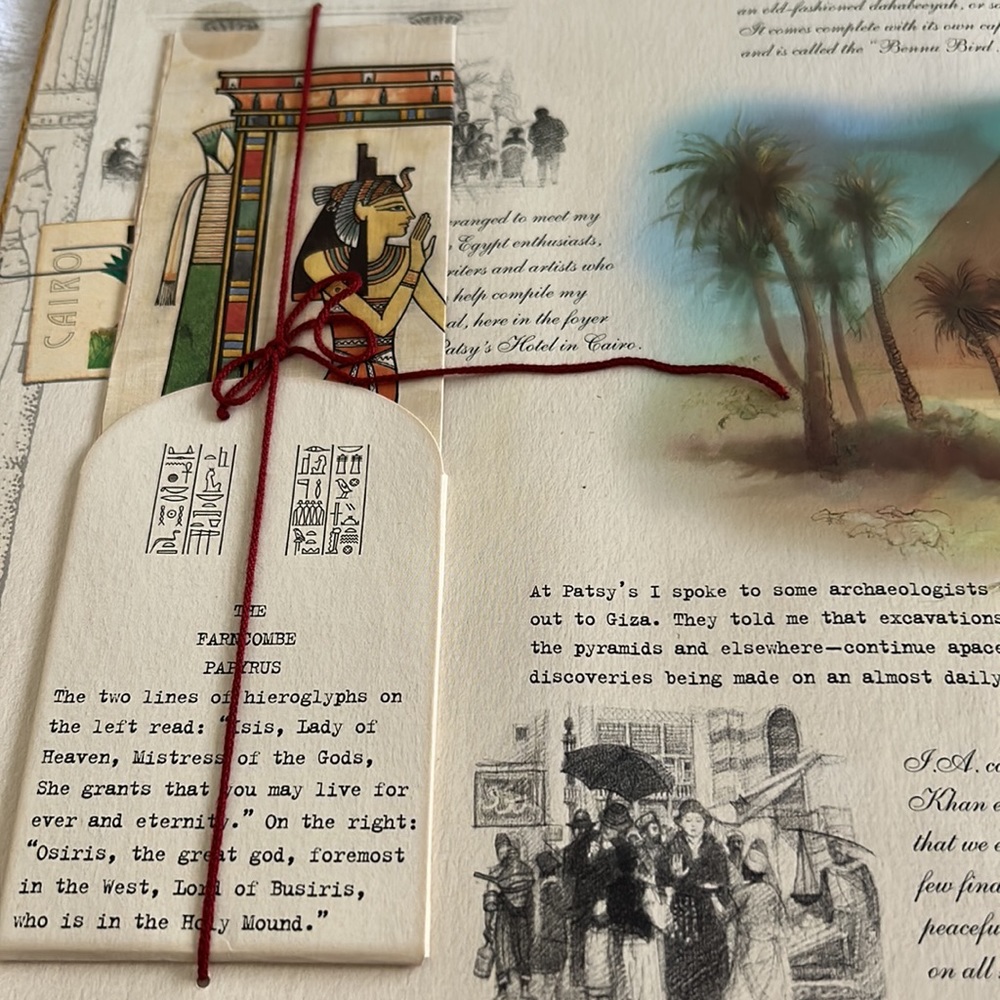 an old-fashioned dahabeeyah, or
It comes complete with its own
and is called the "Bennu Bird
CAIRO
to meet my
Egypt enthusiasts,
and artists who
help compile my
here in the foyer
Patsy's Hotel in Cairo.
THE
FARNCOMBE
PAPYRUS
The two lines of hieroglyphs on
the left read: "Isis, Lady of
Heaven, Mistress of the Gods,
She grants that you may live for
ever and eternity." On the right:
"Osiris, the great god, foremost
in the West, Lord of Busiris,
who is in the Holy Mound."
At Patsy's I spoke to some archaeologists
out to Giza. They told me that excavations
the pyramids and elsewhere—continue apace
discoveries being made on an almost daily
I.A.
Khan
that we
few
on all